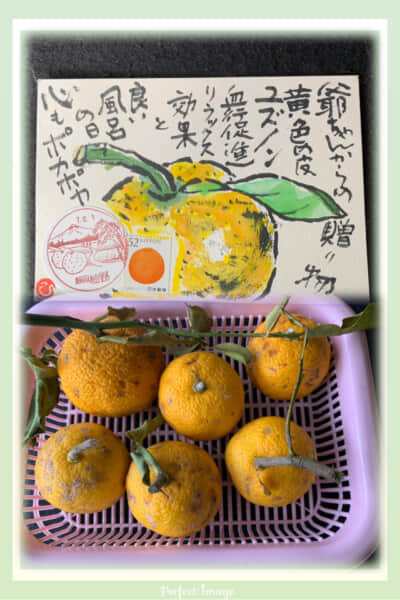 爺ちゃんからの贈り物
黄色の皮
ユズノン
血行促進
リラックス
効果
と
良い
風呂
の日
心もポカポカ
52
Perfect Image